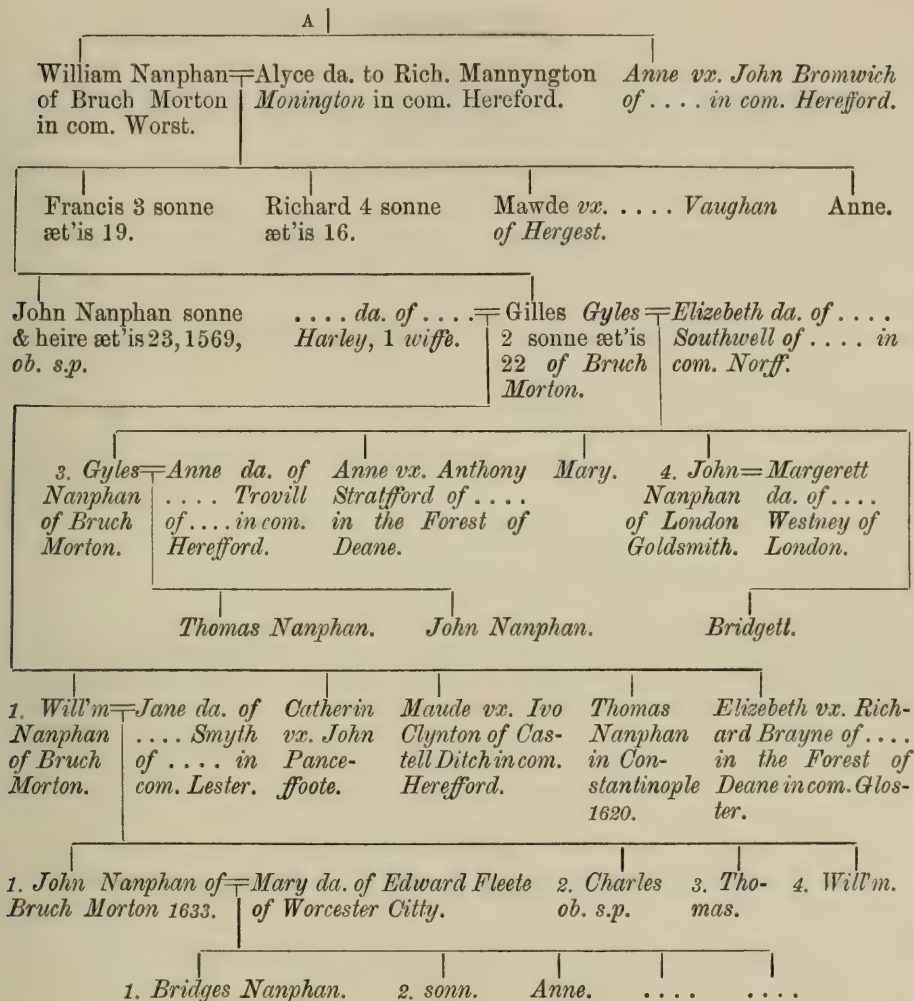 A
William Nanphan=Alyce da. to Rich. Mannyngton
of Bruch Morton Monington in com. Hereford.
in com. Worst.
Anne vx. John Bromwich
of . . . . in com. Herefford.
Francis 3 sonne
æt'is 19.
Richard 4 sonne
æt'is 16.
Mawde vx. . . . . Vaughan
of Hergest.
Anne.
John Nanphan sonne
& heire æt'is 23, 1569,
ob. s.p.
. . . . da. of . . . .=
Harley, 1 wiffe.
Gilles Gyles=
2 sonne æt'is
22 of Bruch
Morton.
Elizebeth da. of . . . .
Southwell of . . . . in
com. Norff.
3. Gyles=
Nanphan
of Bruch
Morton.
Anne da. of
. . . . Trovill
of . . . . in com.
Herefford.
Anne vx. Anthony
Stratfford of . . . .
in the Forest of
Deane.
Mary.
4. John=
Nanphan
of London
Goldsmith.
Margerett
da. of . . . .
Westney of
London.
Thomas Nanphan.
John Nanphan.
Bridgett.
1. Will'm=
Nanphan
of Bruch
Morton.
Jane da. of
. . . . Smyth
of . . . . in
com. Lester.
Catherin
vx. John
Pance-
ffoote.
Maude vx. Ivo
Clynton of Cas-
tell Ditch in com.
Herefford.
Thomas
Nanphan
in Con-
stantinople
1620.
Elizebeth vx. Rich-
ard Brayne of . . . .
in the Forest of
Deane in com. Glos-
ter.
1. John Nanphan of=
Bruch Morton 1633.
Mary da. of Edward Fleete
of Worcester Citty.
2. Charles
ob. s.p.
3. Tho-
mas.
4. Will'm.
1. Bridges Nanphan.
2. sonn.
Anne.
. . . .
. . . .